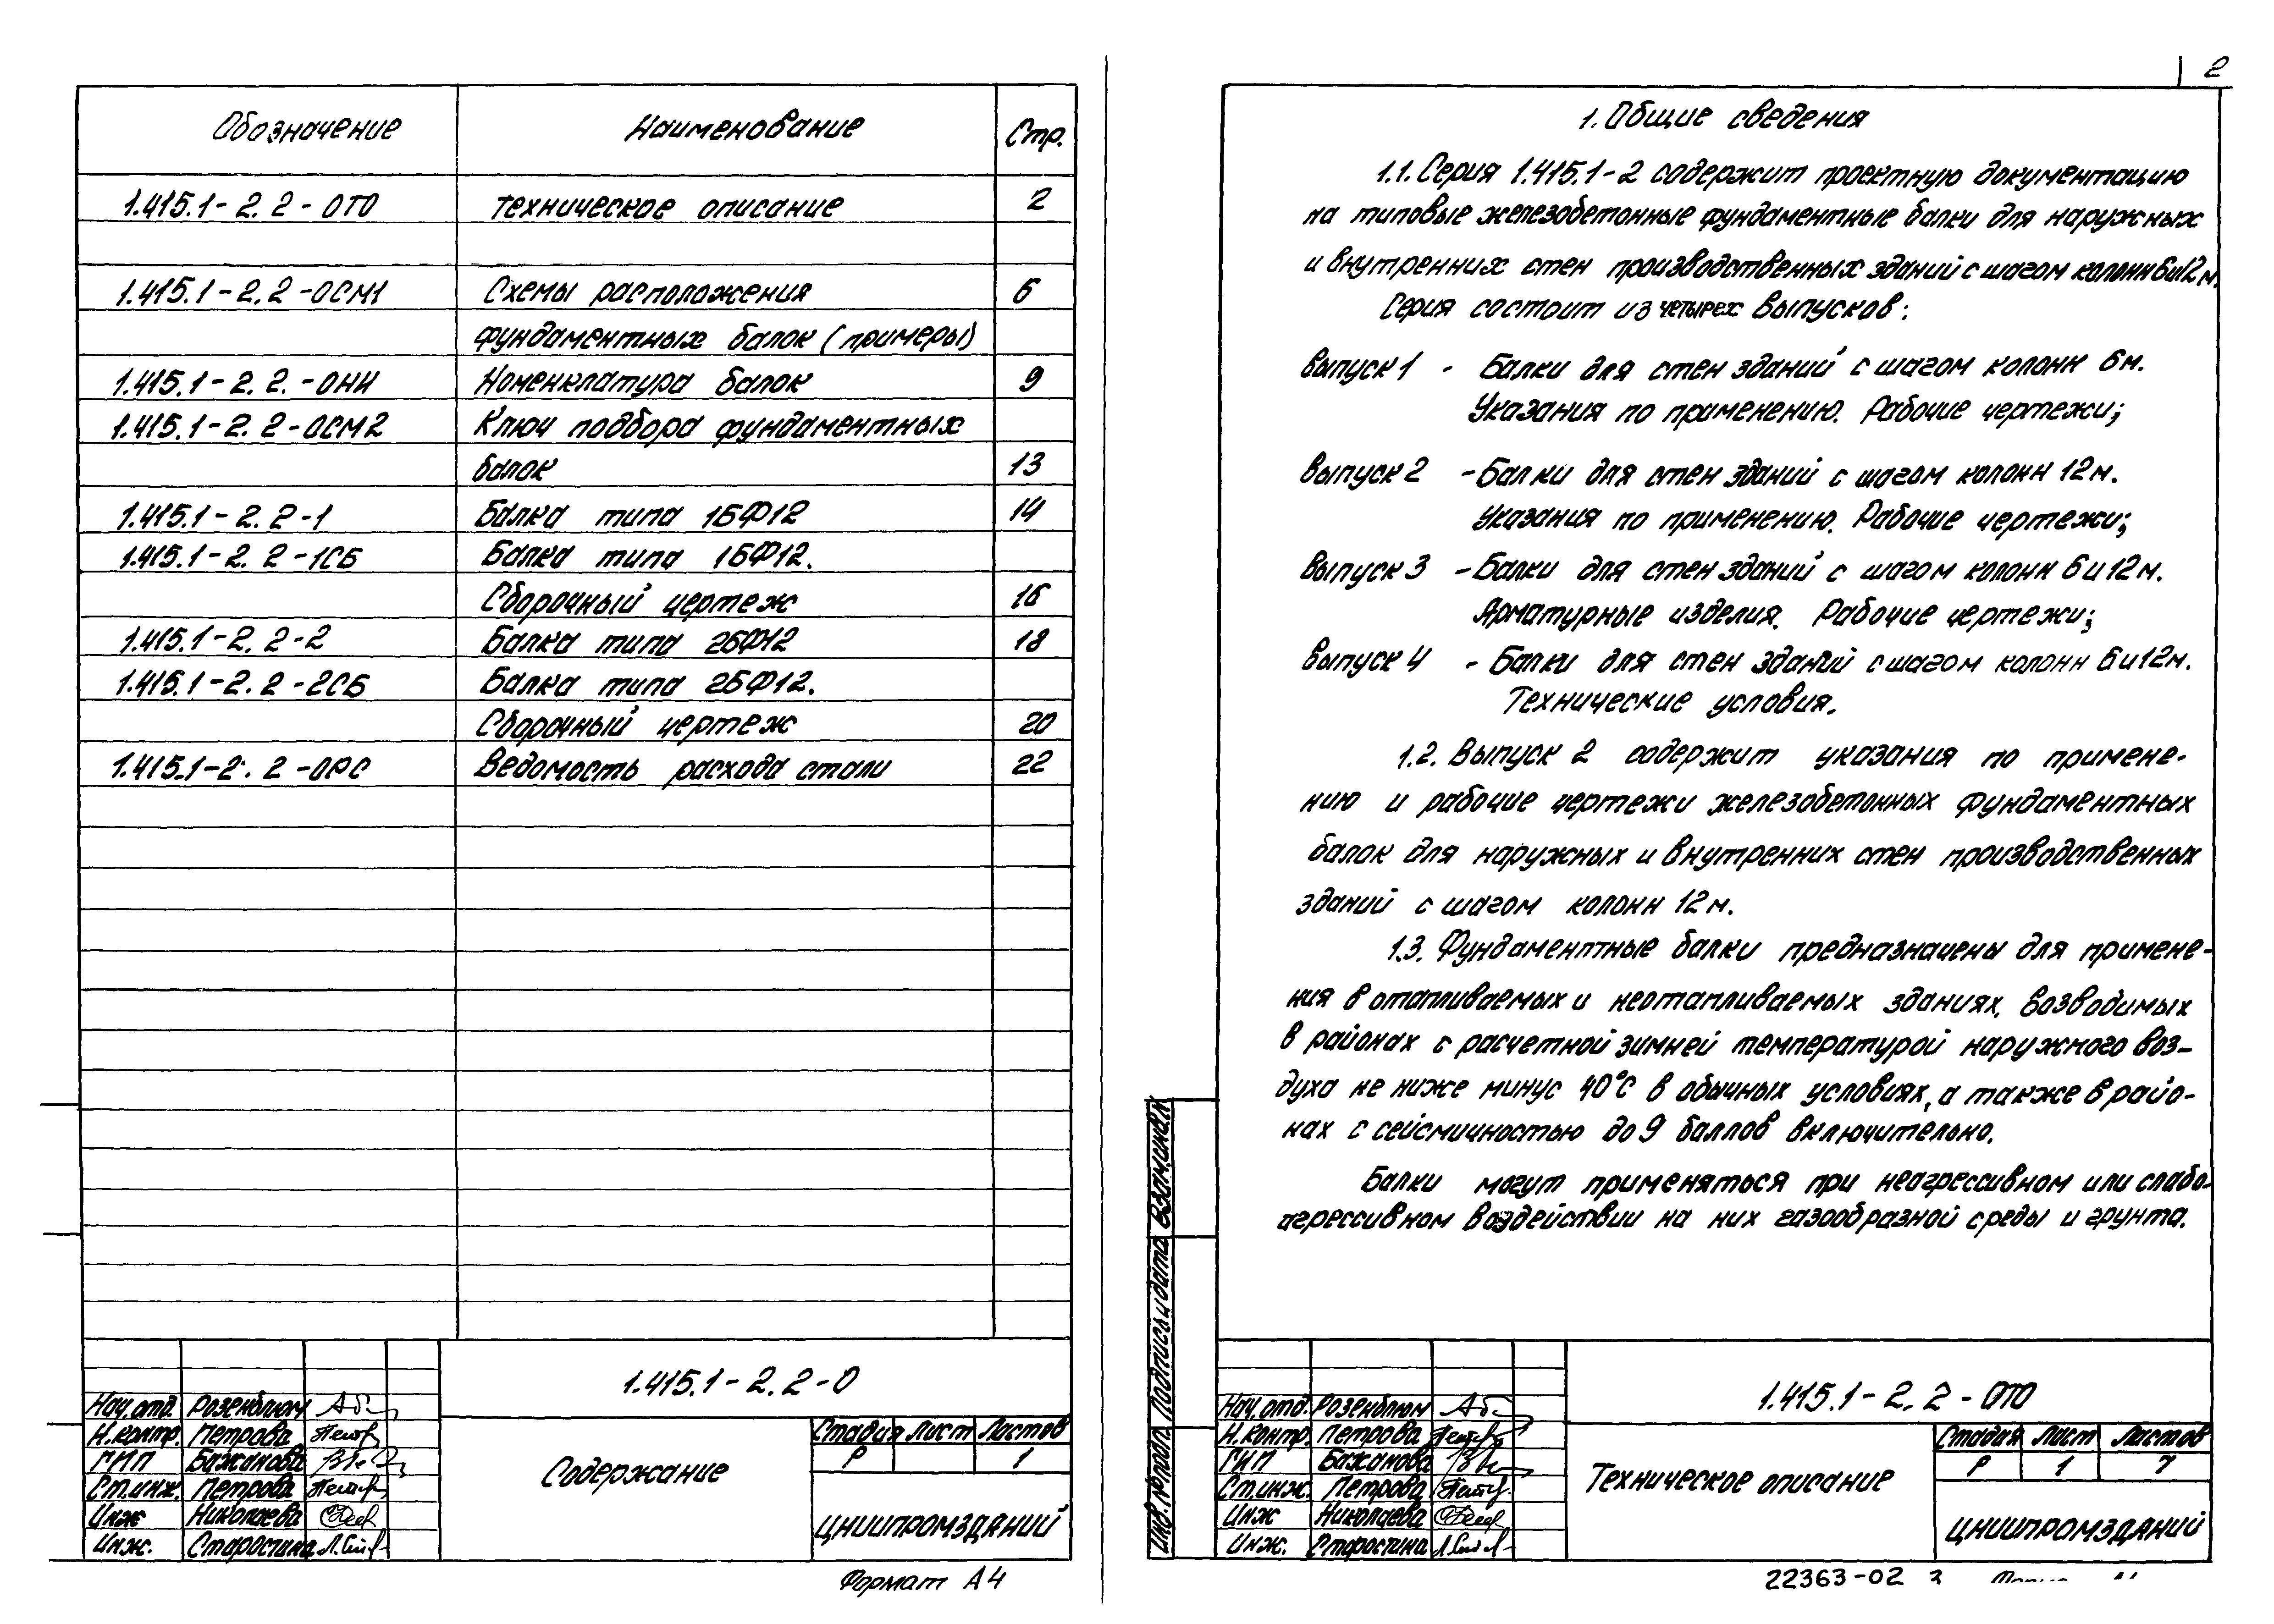 Обозначение Наименование Стр.
1.415.1-2.2-ОТО Техническое описание 2
1.415.1-2.2-ОСМ1 Схемы расположения 6
фундаментных балок (примеры)
1.415.1-2.2.-ОНИ Номенклатура балок 9
1.415.1-2.2-ОСМ2 Ключ подбора фундаментных
балок 13
1.415.1-2.2-1 Балка типа 1БФ12 14
1.415.1-2.2-1СБ Балка типа 1БФ12.
Сборочный чертеж 16
1.415.1-2.2-2 Балка типа 2БФ12 18
1.415.1-2.2-2СБ Балка типа 2БФ12.
Сборочный чертеж 20
1.415.1-2.2-ОРС Ведомость расхода стали 22
1.415.1-2.2-О
Нач.отд. Розенблюм
Н.контр. Петрова
ГИП Бажанова
Ст.инж. Петрова
Инж Николаева
Инж. Старостина
Содержание
Стадия Лист Листов
Р 1
ЦНИИПРОМЗДАНИЙ
Формат А4
2
1. Общие сведения
1.1. Серия 1.415.1-2 содержит проектную документацию
на типовые железобетонные фундаментные балки для наружных
и внутренних стен производственных зданий с шагом колонн 6 и 12 м.
Серия состоит из четырех выпусков:
Выпуск 1 - Балки для стен зданий с шагом колонн 6м.
Указания по применению. Рабочие чертежи;
Выпуск 2 - Балки для стен зданий с шагом колонн 12м.
Указания по применению. Рабочие чертежи;
Выпуск 3 - Балки для стен зданий с шагом колонн 6 и 12м.
Арматурные изделия. Рабочие чертежи;
Выпуск 4 - Балки для стен зданий с шагом колонн 6 и 12м.
Технические условия.
1.2. Выпуск 2 содержит указания по примене-
нию и рабочие чертежи железобетонных фундаментных
балок для наружных и внутренних стен производственных
зданий с шагом колонн 12 м.
1.3. Фундаментные балки предназначены для примене-
ния в отапливаемых и неотапливаемых зданиях, возводимых
в районах с расчетной зимней температурой наружного воз-
духа не ниже минус 40°С в обычных условиях, а также в райо-
нах с сейсмичностью до 9 баллов включительно.
Балки могут применяться при неагрессивном или слабо-
агрессивном воздействии на них газообразной среды и грунта.
Инв.№ подл. Подпись и дата Взам.инв.№
1.415.1-2.2-ОТО
Нач.отд. Розенблюм
Н.контр. Петрова
ГИП Бажанова
Ст.инж. Петрова
Инж Николаева
Инж. Старостина
Техническое описание
Стадия Лист Листов
Р 1 7
ЦНИИПРОМЗДАНИЙ
22363-02 3